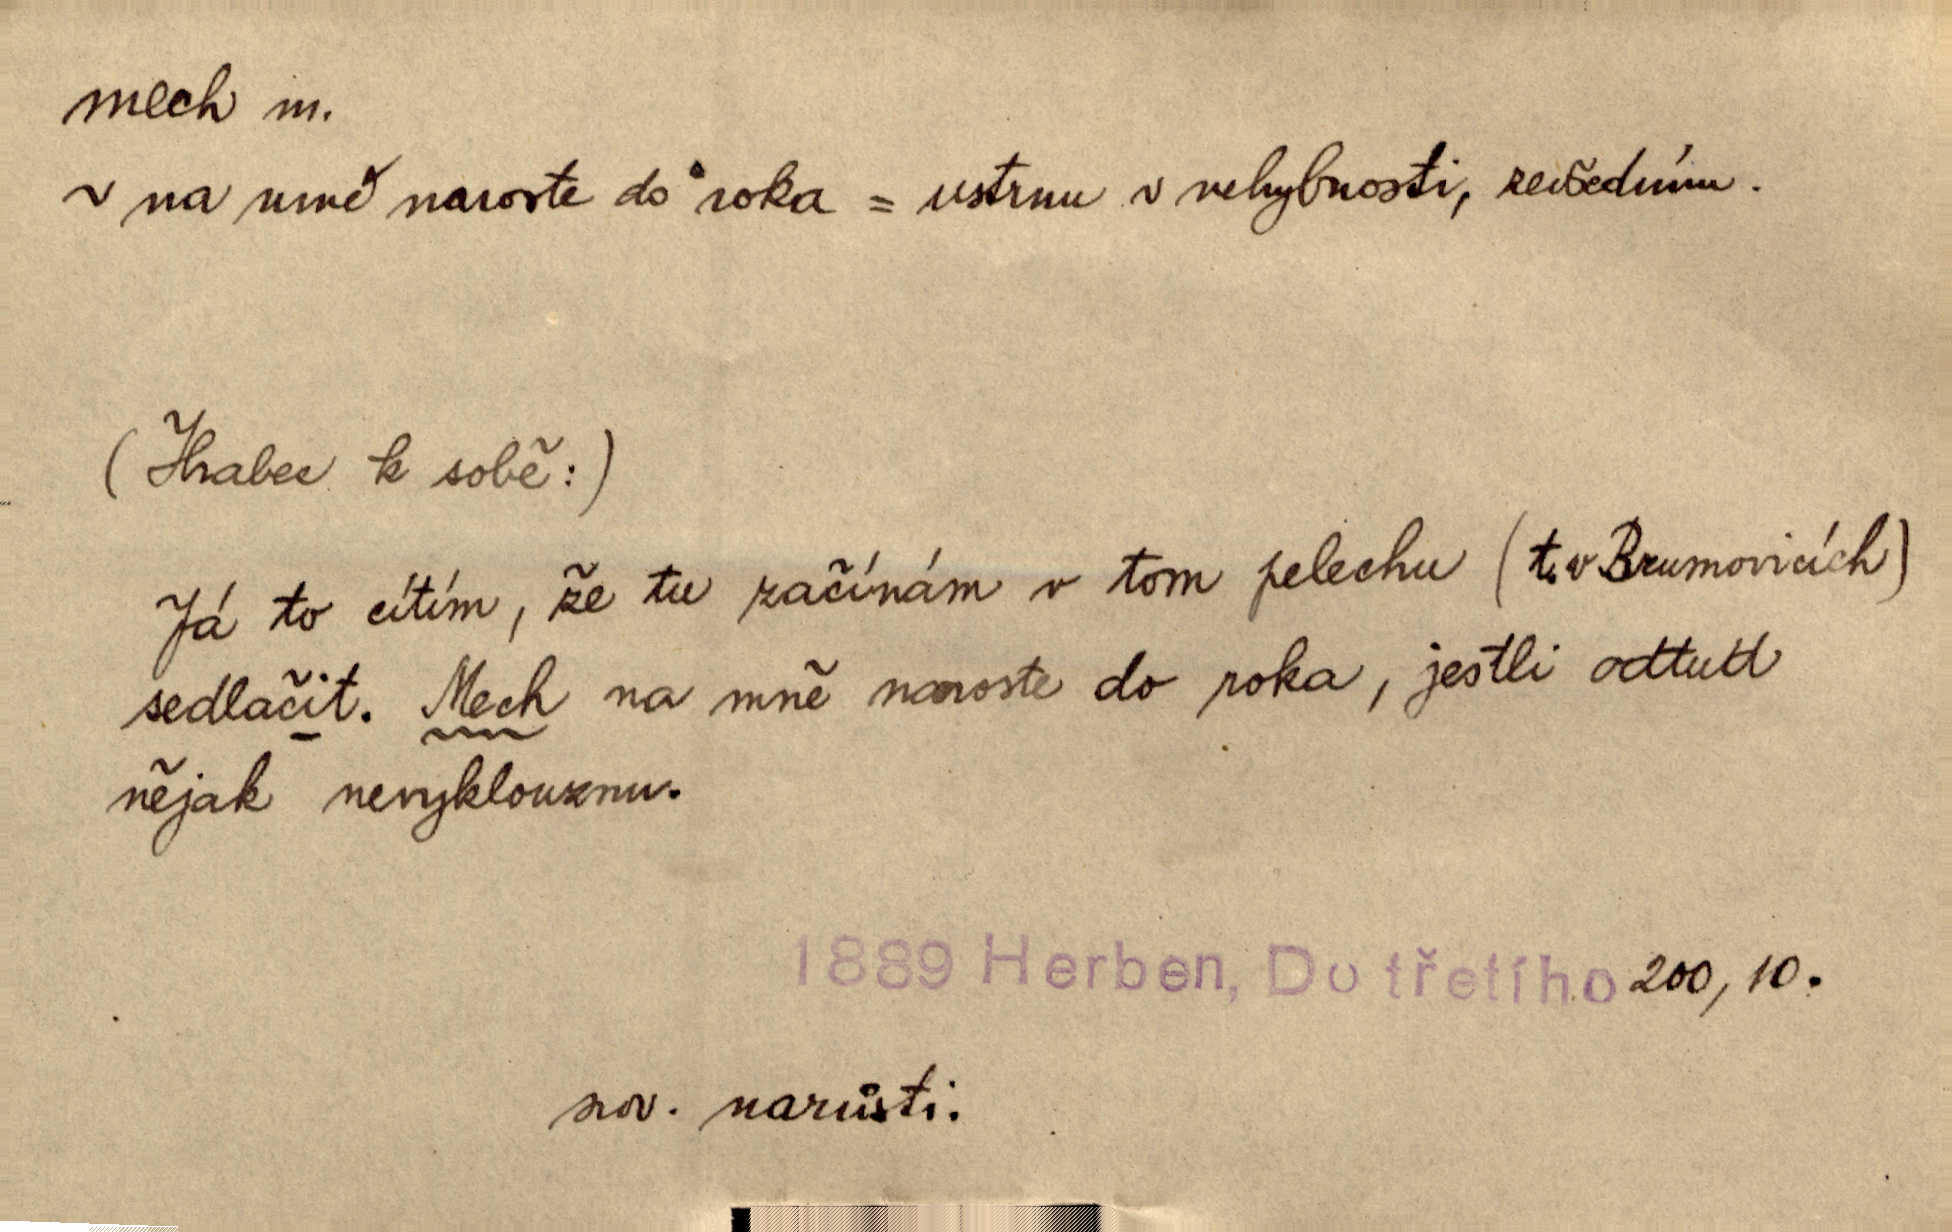 mech m.
~ na mně naroste do roka = ustrnu v nehybnosti, zevšedním.
(Hrabec k sobě:)
Já to cítím, že tu začínám v tom pelechu (t. v Brumovicích)
sedlačit. Mech na mně naroste do roka, jestli odtud
nějak nevyklouznu.
1889 Herben, Do třetího 200, 10.
srov. narůsti.